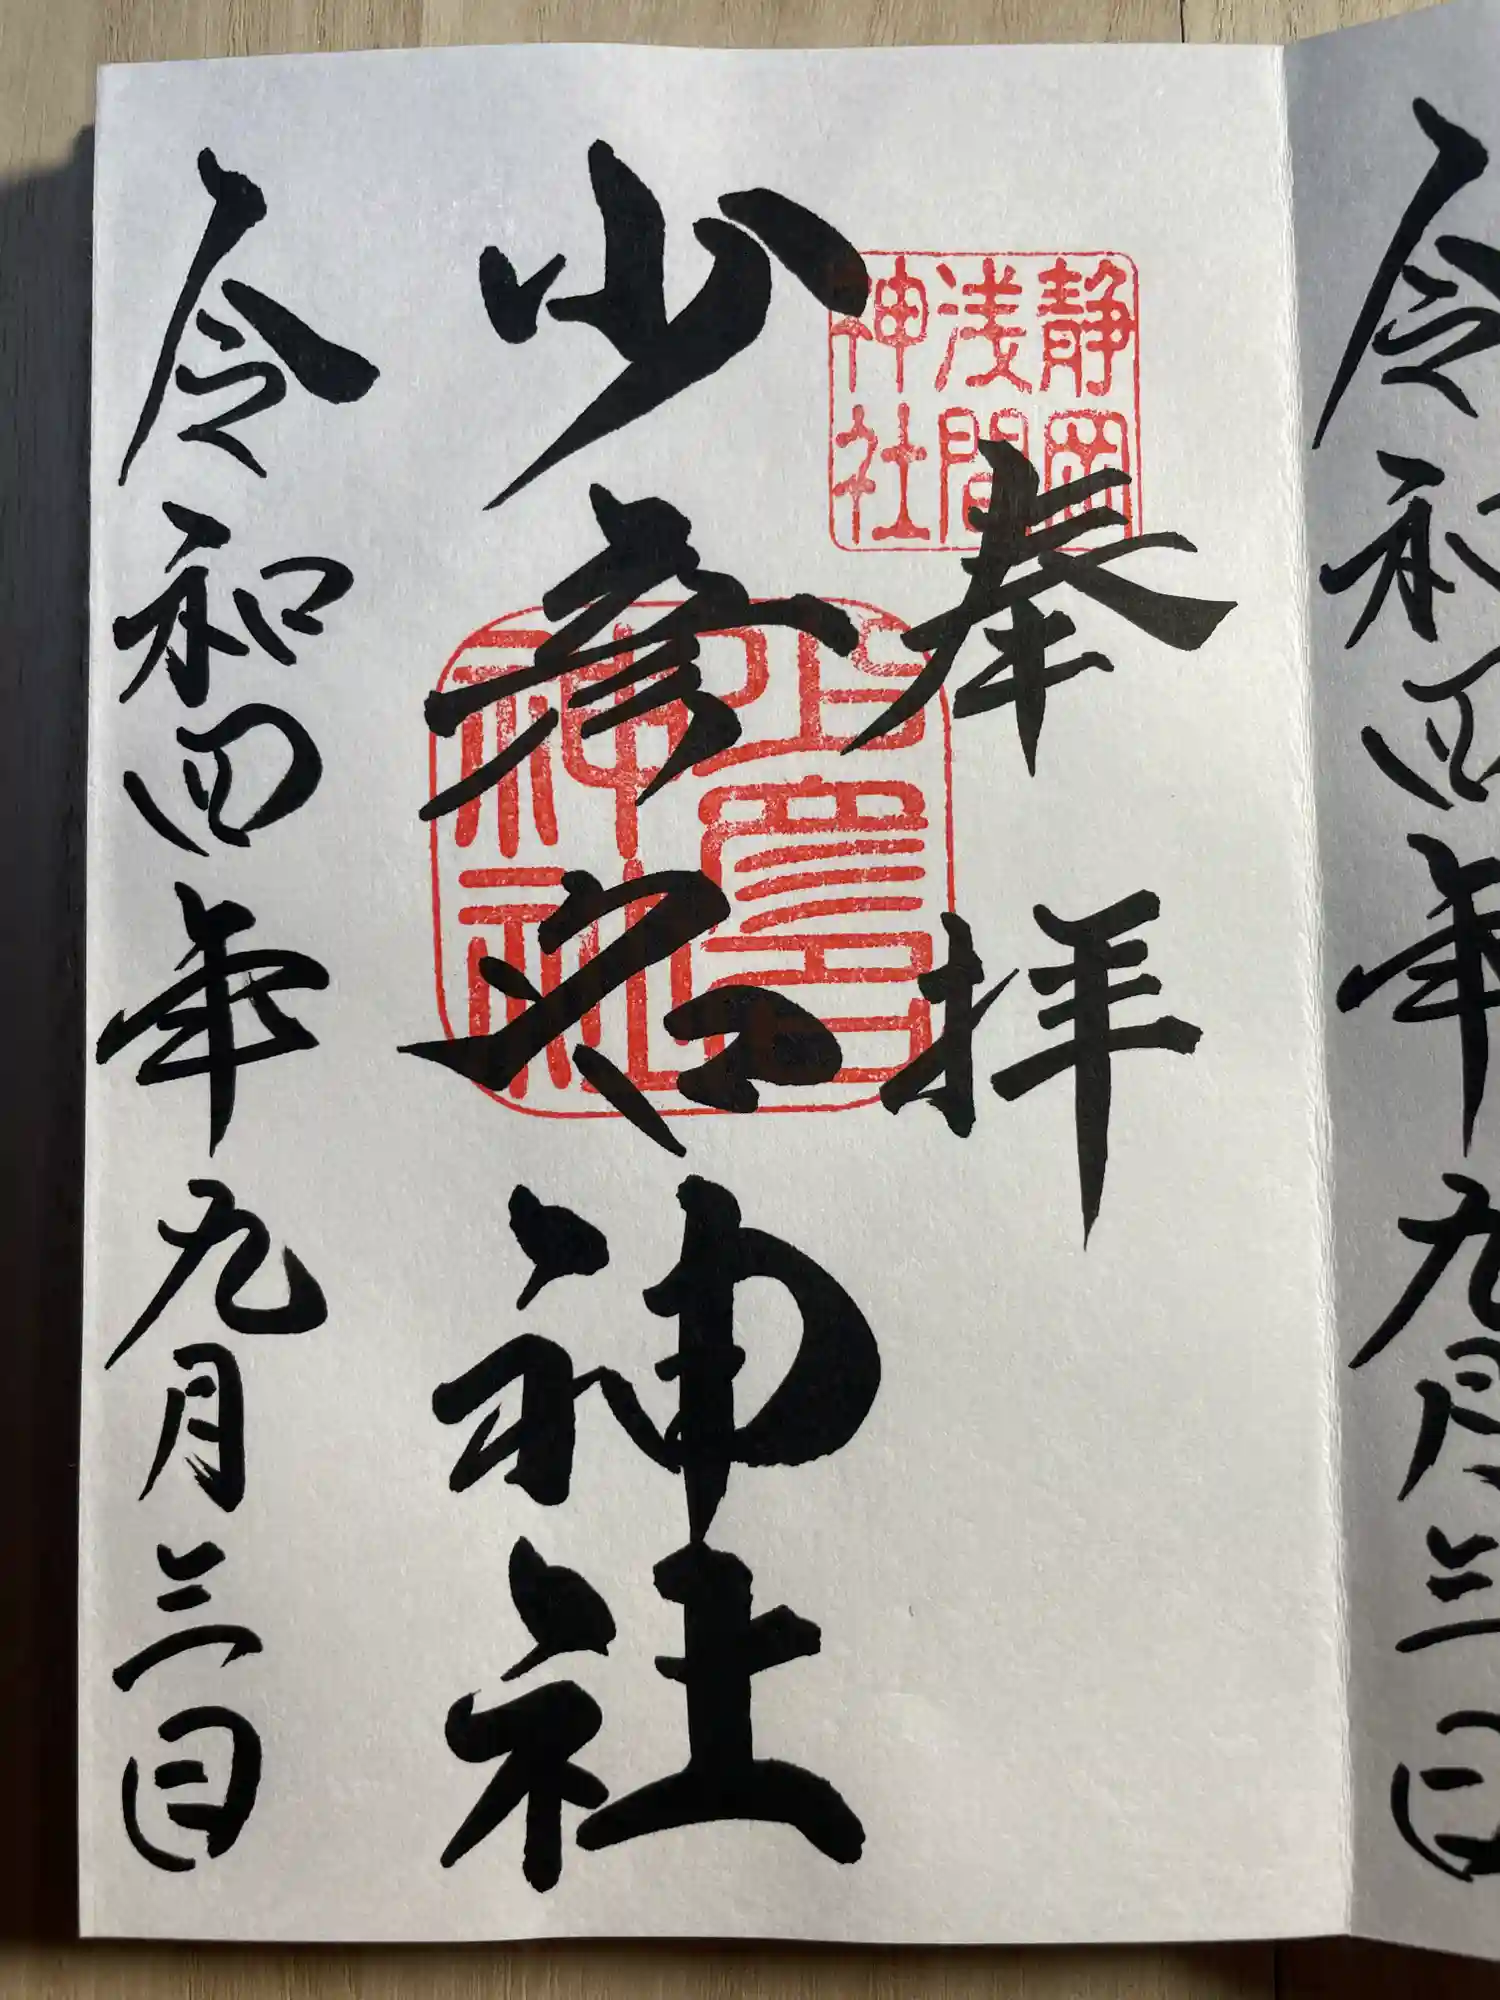 令和四年九月三日
静岡
浅間
神社
奉拝
少彦名神社
少彦名
神社
令和四年九月三日